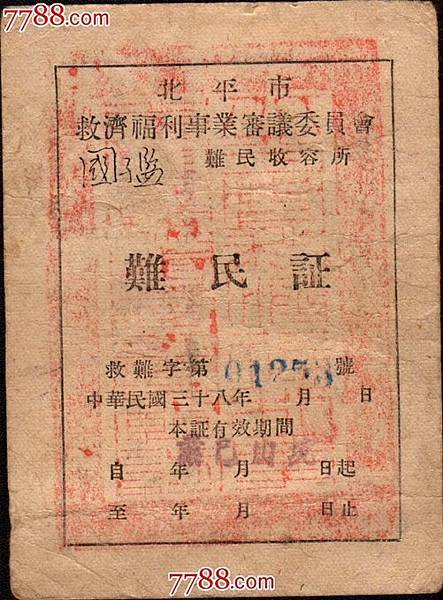 7788.com
北平市
救濟福利事業審議委員會
國鑑 難民收容所
難民証
救難字第01253號
中華民國三十八年 月 日
本証有效期間
自 年 月 日起
至 年 月 日止
7788.com